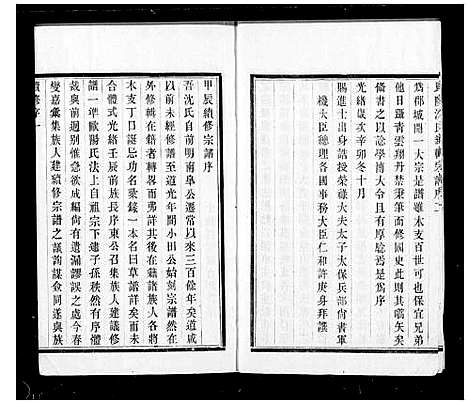 爲郡城閎一大宗是譜雖本支百世可也宜兄弟
他日躡青雲翔丹禁秉筆而修國史此其嚆矢矣
脩書之以諗學博大令且有厚騐焉是爲序
光緒歲次辛卯冬十月
賜進士出身誥授榮祿大夫太子太保兵部尚書軍
機大臣總理各國事務大臣仁和許庚身拜譔
甲辰續修宗譜序
吾沈氏自前明南阜公遷常以來三百餘年矣道咸
以前未經修譜至道光年間小田公始刻宗譜然在
外修輯在籍者轉畧而弗詳其後在籍諸族人各就
本支丁口誕忌功名彙錄一本名曰草譜詳矣而未
合體式光緒壬辰前族長序東公召集族人建議修
譜一準歐陽氏法上自祖宗下逮子孫秩然有序體
裁與前週別惜急欲成編尚有遺漏謬誤之處今春
燮嘉彙集族人建續修宗譜之議詢謀僉同遂與族